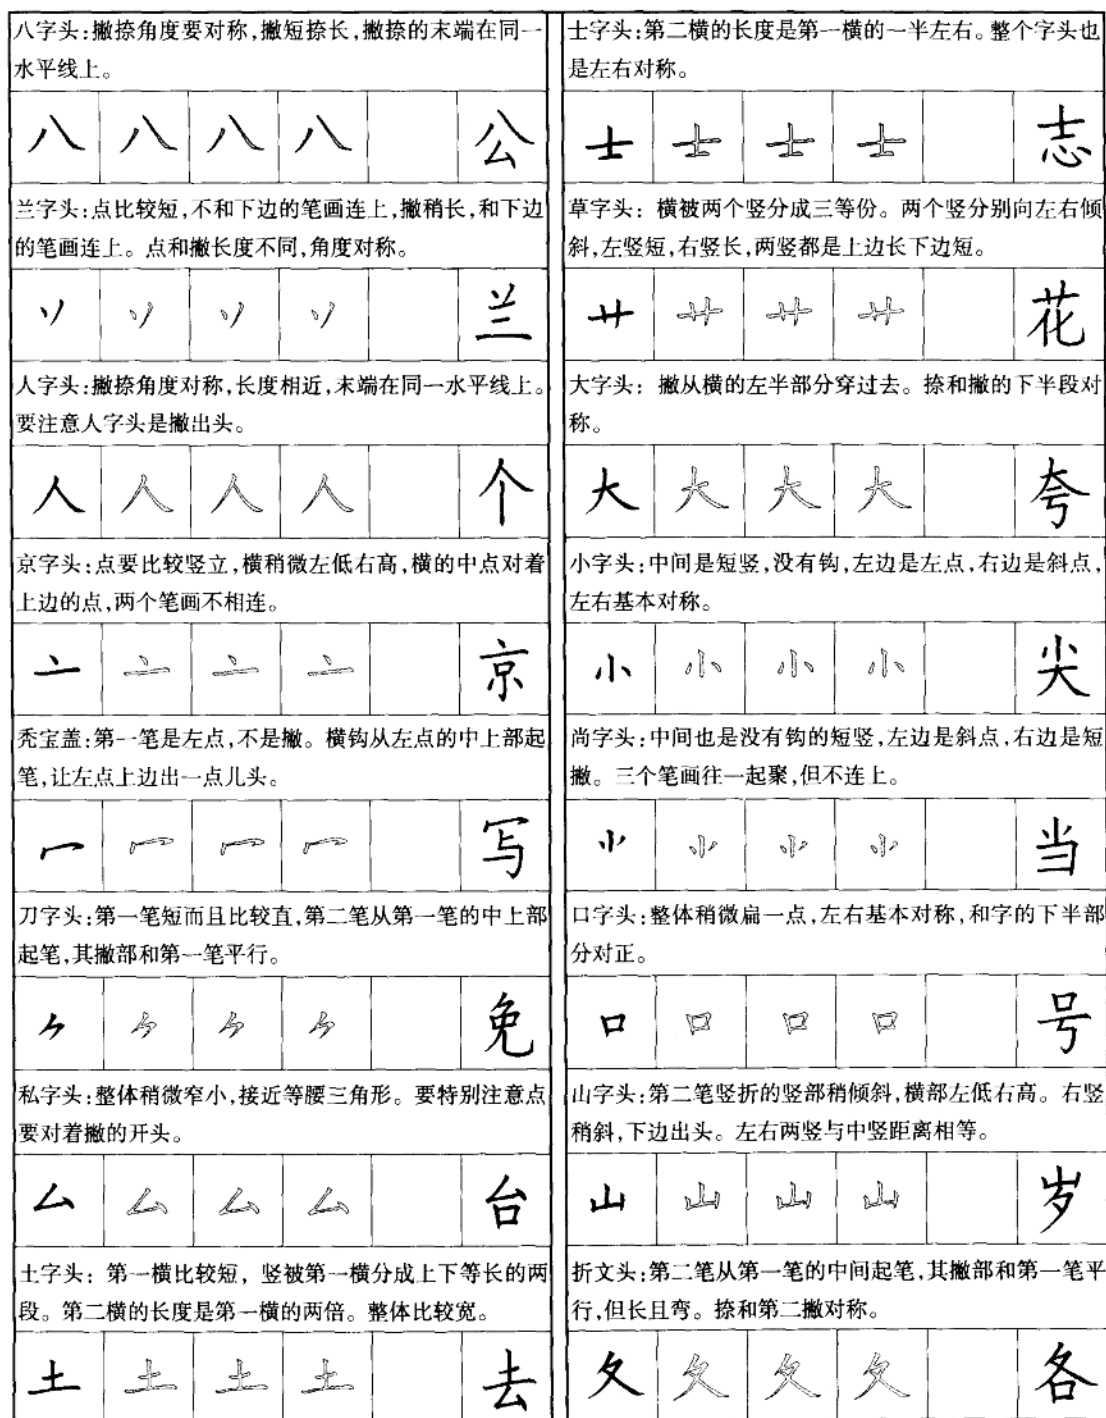 八字头:撇捺角度要对称,撇短捺长,撇捺的末端在同一
水平线上。
八 八 八 八 公
兰字头:点比较短,不和下边的笔画连上,撇稍长,和下边
的笔画连上。点和撇长度不同,角度对称。
丷 丷 丷 丷 兰
人字头:撇捺角度对称,长度相近,末端在同一水平线上。
要注意人字头是撇出头。
人 人 人 人 个
京字头:点要比较竖立,横稍微左低右高,横的中点对着
上边的点,两个笔画不相连。
亠 亠 亠 亠 京
秃宝盖:第一笔是左点,不是撇。横钩从左点的中上部起
笔,让左点上边出一点儿头。
冖 冖 冖 冖 写
刀字头:第一笔短而且比较直,第二笔从第一笔的中上部
起笔,其撇部和第一笔平行。
𠂊 𠂊 𠂊 𠂊 免
私字头:整体稍微窄小,接近等腰三角形。要特别注意点
要对着撇的开头。
厶 厶 厶 厶 台
土字头: 第一横比较短, 竖被第一横分成上下等长的两
段。第二横的长度是第一横的两倍。整体比较宽。
土 土 土 土 去
士字头:第二横的长度是第一横的一半左右。整个字头也
是左右对称。
士 士 士 士 志
草字头: 横被两个竖分成三等份。两个竖分别向左右倾
斜,左竖短,右竖长,两竖都是上边长下边短。
艹 艹 艹 艹 花
大字头: 撇从横的左半部分穿过去。捺和撇的下半段对
称。
大 大 大 大 夸
小字头:中间是短竖,没有钩,左边是左点,右边是斜点,
左右基本对称。
小 小 小 小 尖
尚字头:中间也是没有钩的短竖,左边是斜点,右边是短
撇。三个笔画往一起聚,但不连上。
⺌ ⺌ ⺌ ⺌ 当
口字头:整体稍微扁一点,左右基本对称,和字的下半部
分对正。
口 口 口 口 号
山字头:第二笔竖折的竖部稍倾斜,横部左低右高。右竖
稍斜,下边出头。左右两竖与中竖距离相等。
山 山 山 山 岁
折文头:第二笔从第一笔的中间起笔,其撇部和第一笔平
行,但长且弯。捺和第二撇对称。
夂 夂 夂 夂 各